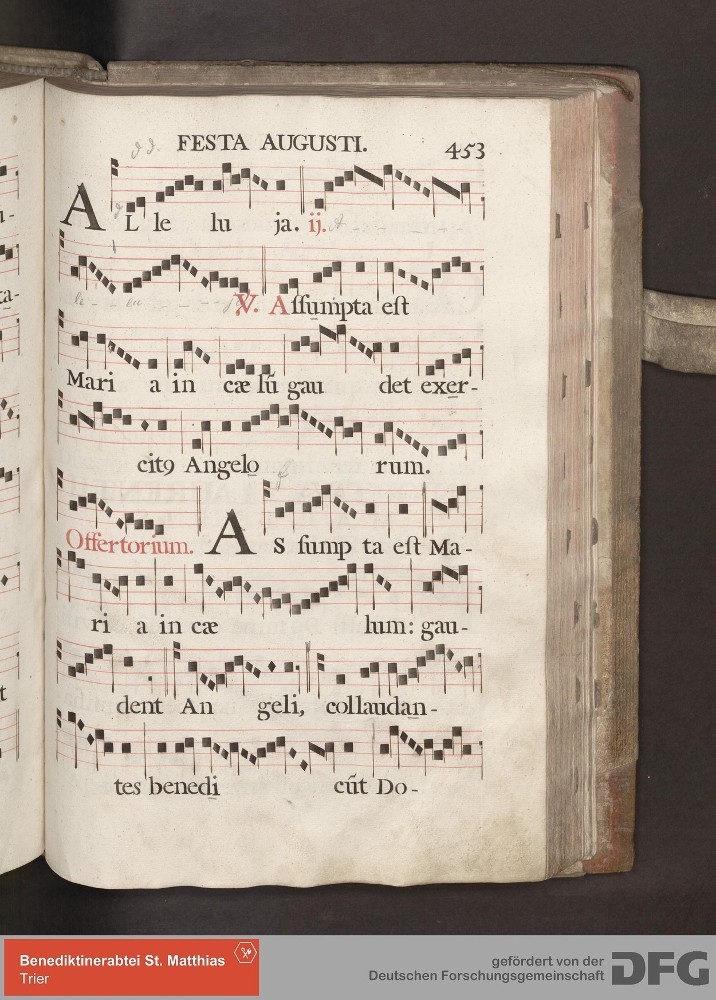 FESTA AUGUSTI. 453
AL le lu ja. ij.
V. Assumpta est
Mari a in cæ lũ gau det exer-
citꝯ Angelo rum.
Offertorium. AS sump ta est Ma-
ri a in cæ lum: gau-
dent An geli, collaudan-
tes benedi cũt Do-
Benediktinerabtei St. Matthias
Trier
gefördert von der
Deutschen Forschungsgemeinschaft DFG